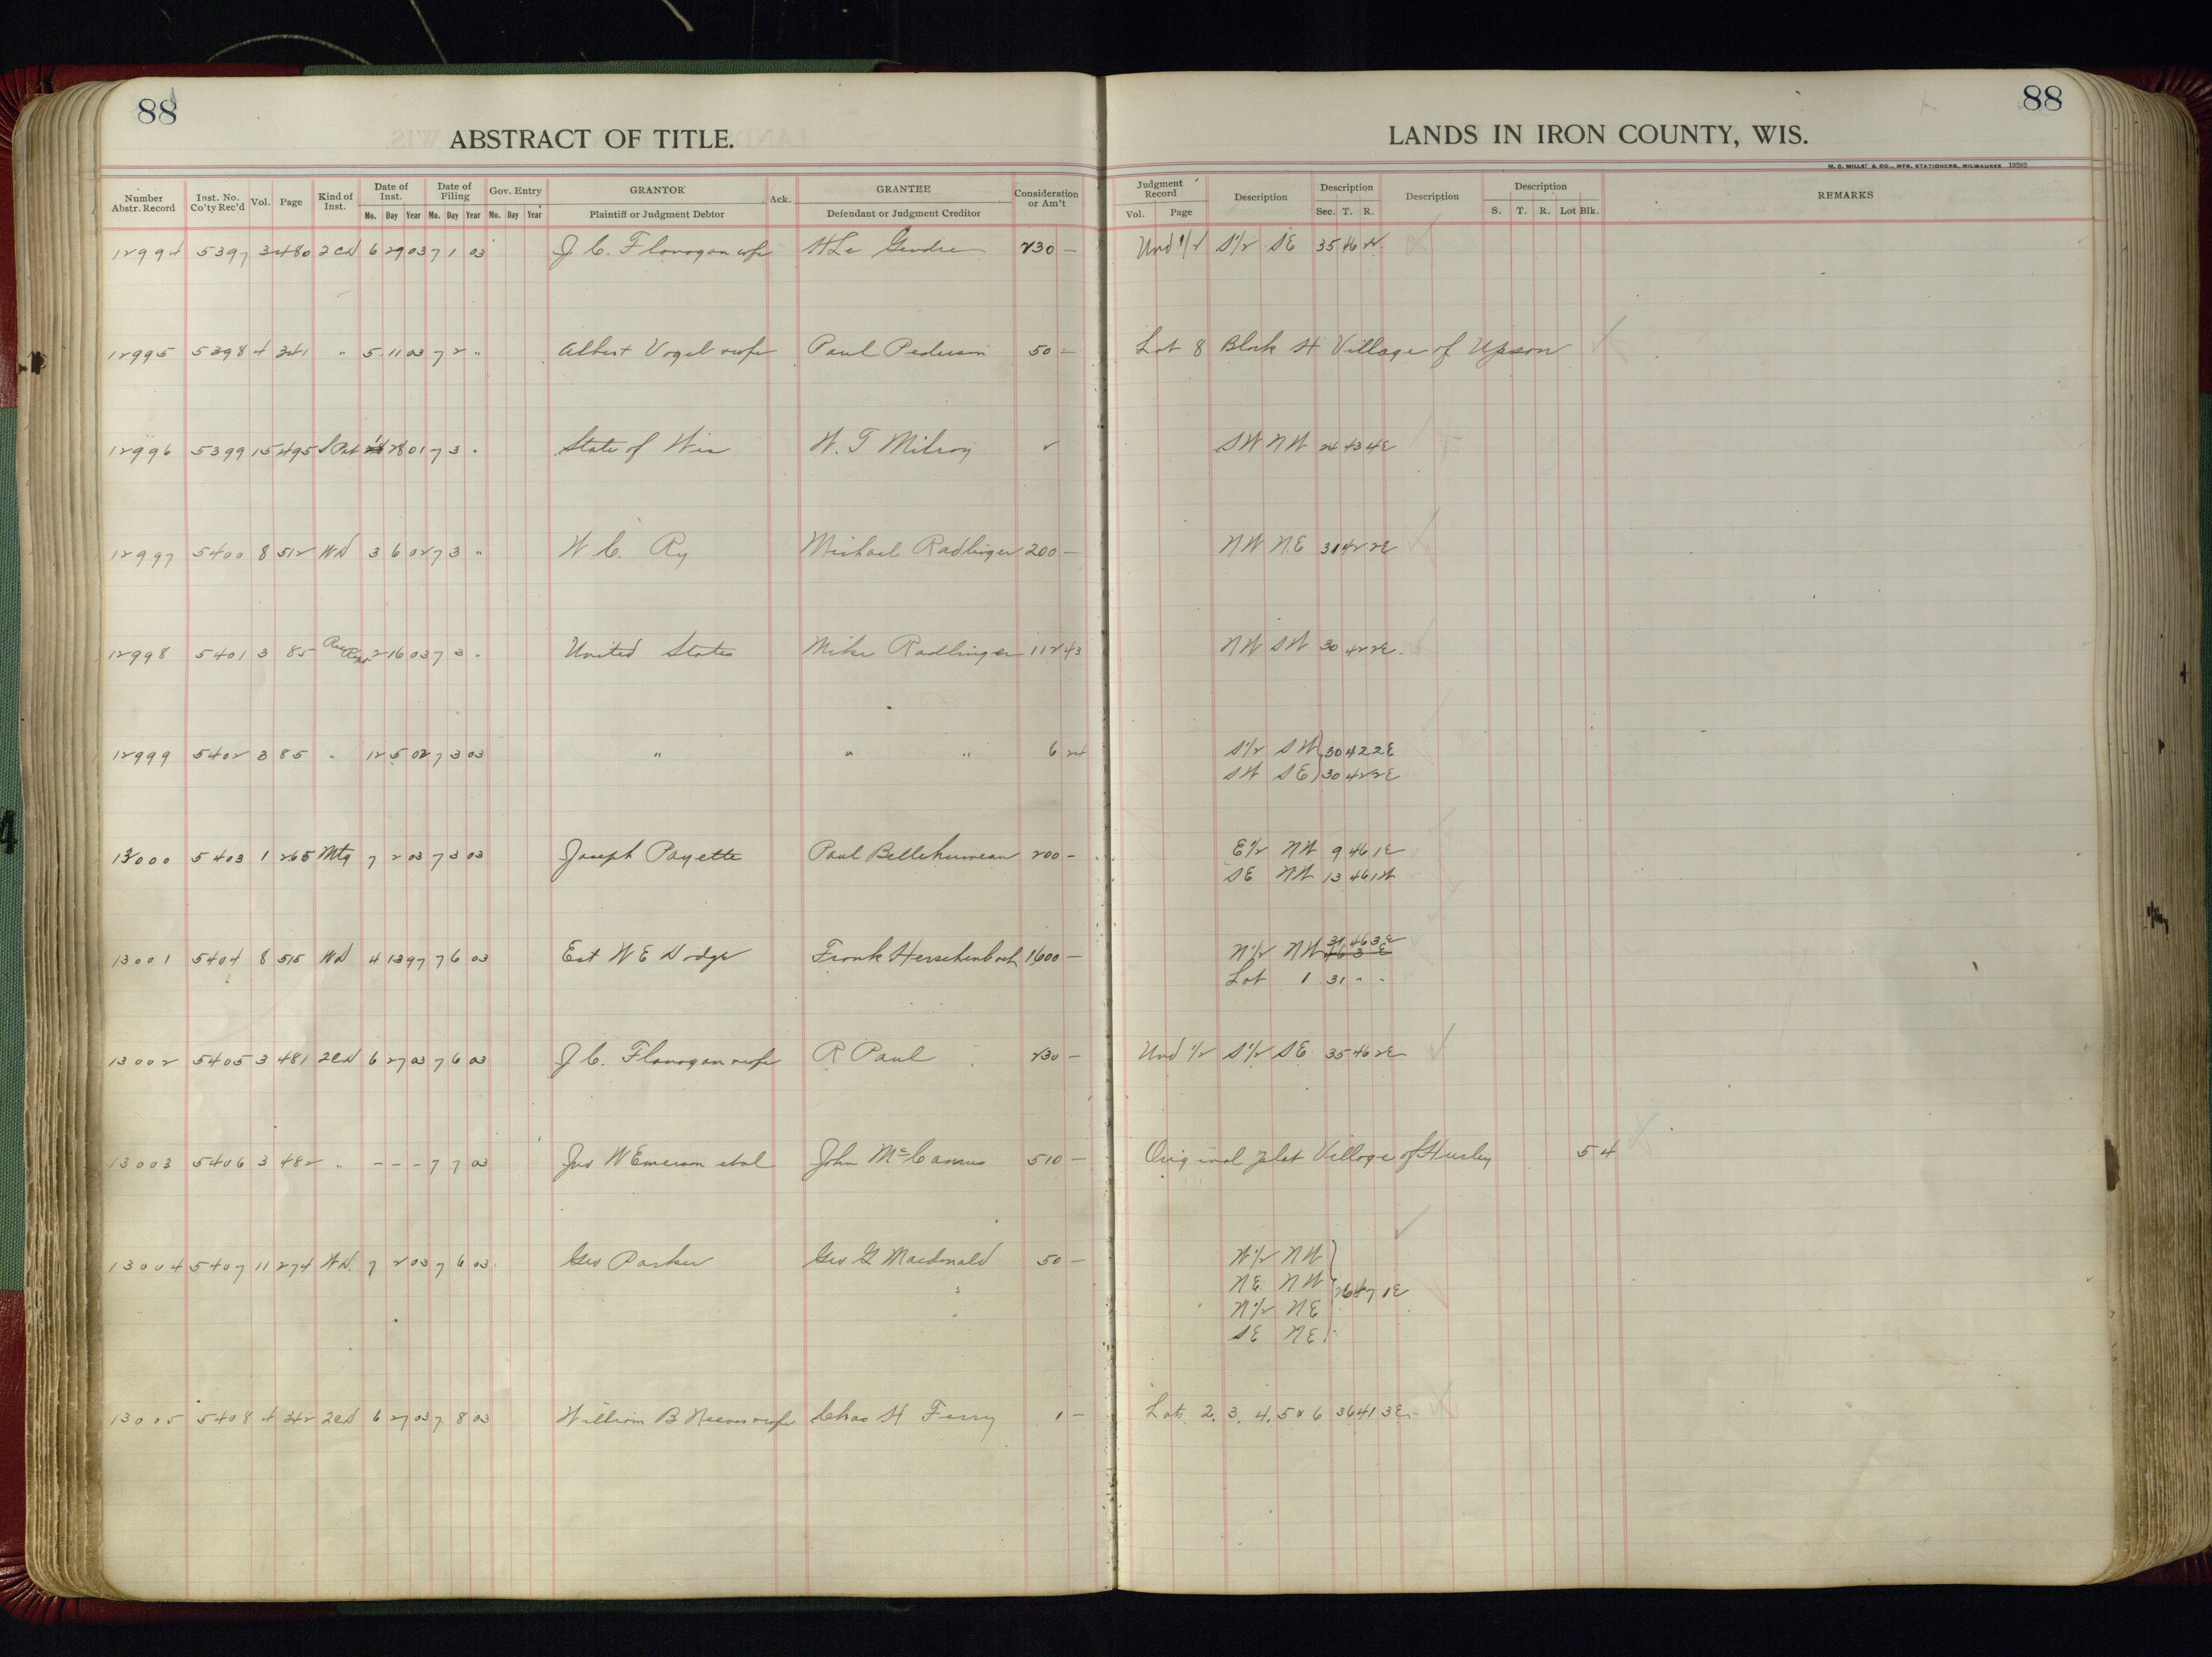 88
ABSTRACT OF TITLE.
88
LANDS IN IRON COUNTY, WIS.
M. C. MILLER & CO., MFG. STATIONERS, MILWAUKEE 19282
Number Abstr. Record Inst. No. Co'ty Rec'd Vol. Page Kind of Inst. Date of Inst. Mo. Day Year Date of Filing Mo. Day Year Gov. Entry Mo. Day Year GRANTOR Plaintiff or Judgment Debtor Ack. GRANTEE Defendant or Judgment Creditor Consideration or Am't Judgment Record Vol. Page Description Description Sec. T. R. Description Description S. T. R. Lot Blk. REMARKS
12994 5397 3 480 2CD 6 29 03 7 1 03 J. C. Flanagan wife H Le Gendre 230 — Und 1/2 S1/2 SE 35 46
12995 5398 4 341 " 5 11 03 7 2 " Albert Vogel wife Paul Pederson 50 — Lot 8 Block H Village of Upson
12996 5399 15 495 S Pat 28 01 7 3 " State of Wis W. T Milroy ✓ SW NW 24 43 4E
12997 5400 8 512 WD 3 6 02 7 3 " W. C. Ry Michael Radlinger 200 — NW NE 31 42 2E
12998 5401 3 85 Rec Rcpt 2 16 03 7 3 " United States Mike Radlinger 112 43 NW SW 30 42 2E
12999 5402 3 85 " 12 5 02 7 3 03 " " " 6 24 S1/2 SW } 30 42 2E
SW SE } 30 42 2E
13000 5403 1 265 Mtg 7 2 03 7 3 03 Joseph Payette Paul Bellehumeau 200 — E1/2 NW 9 46 1E
SE NW 13 46 1W
13001 5404 8 515 WD 4 13 97 7 6 03 Est W E Dodge Frank Herschenboch 1600 — N1/2 NW 31 46 3E
46 3 E
Lot 1 31 " "
13002 5405 3 481 2CD 6 27 03 7 6 03 J. C. Flanagan wife R Paul 230 — Und 1/2 S1/2 SE 35 46 2E
13003 5406 3 482 " - - - 7 7 03 Jno W Emerson et al John McCamus 510 — Original plat Village of Hurley 5 4
13004 5407 11 274 WD. 7 2 03 7 6 03 Geo Parker Geo G Macdonald 50 — W1/2 NW
NE NW } 26 47 1E
N1/2 NE
SE NE
13005 5408 4 342 2CD 6 27 03 7 8 03 William B Neeves wife Chas H Ferry 1 — Lots 2. 3. 4. 5 & 6 36 41 3E